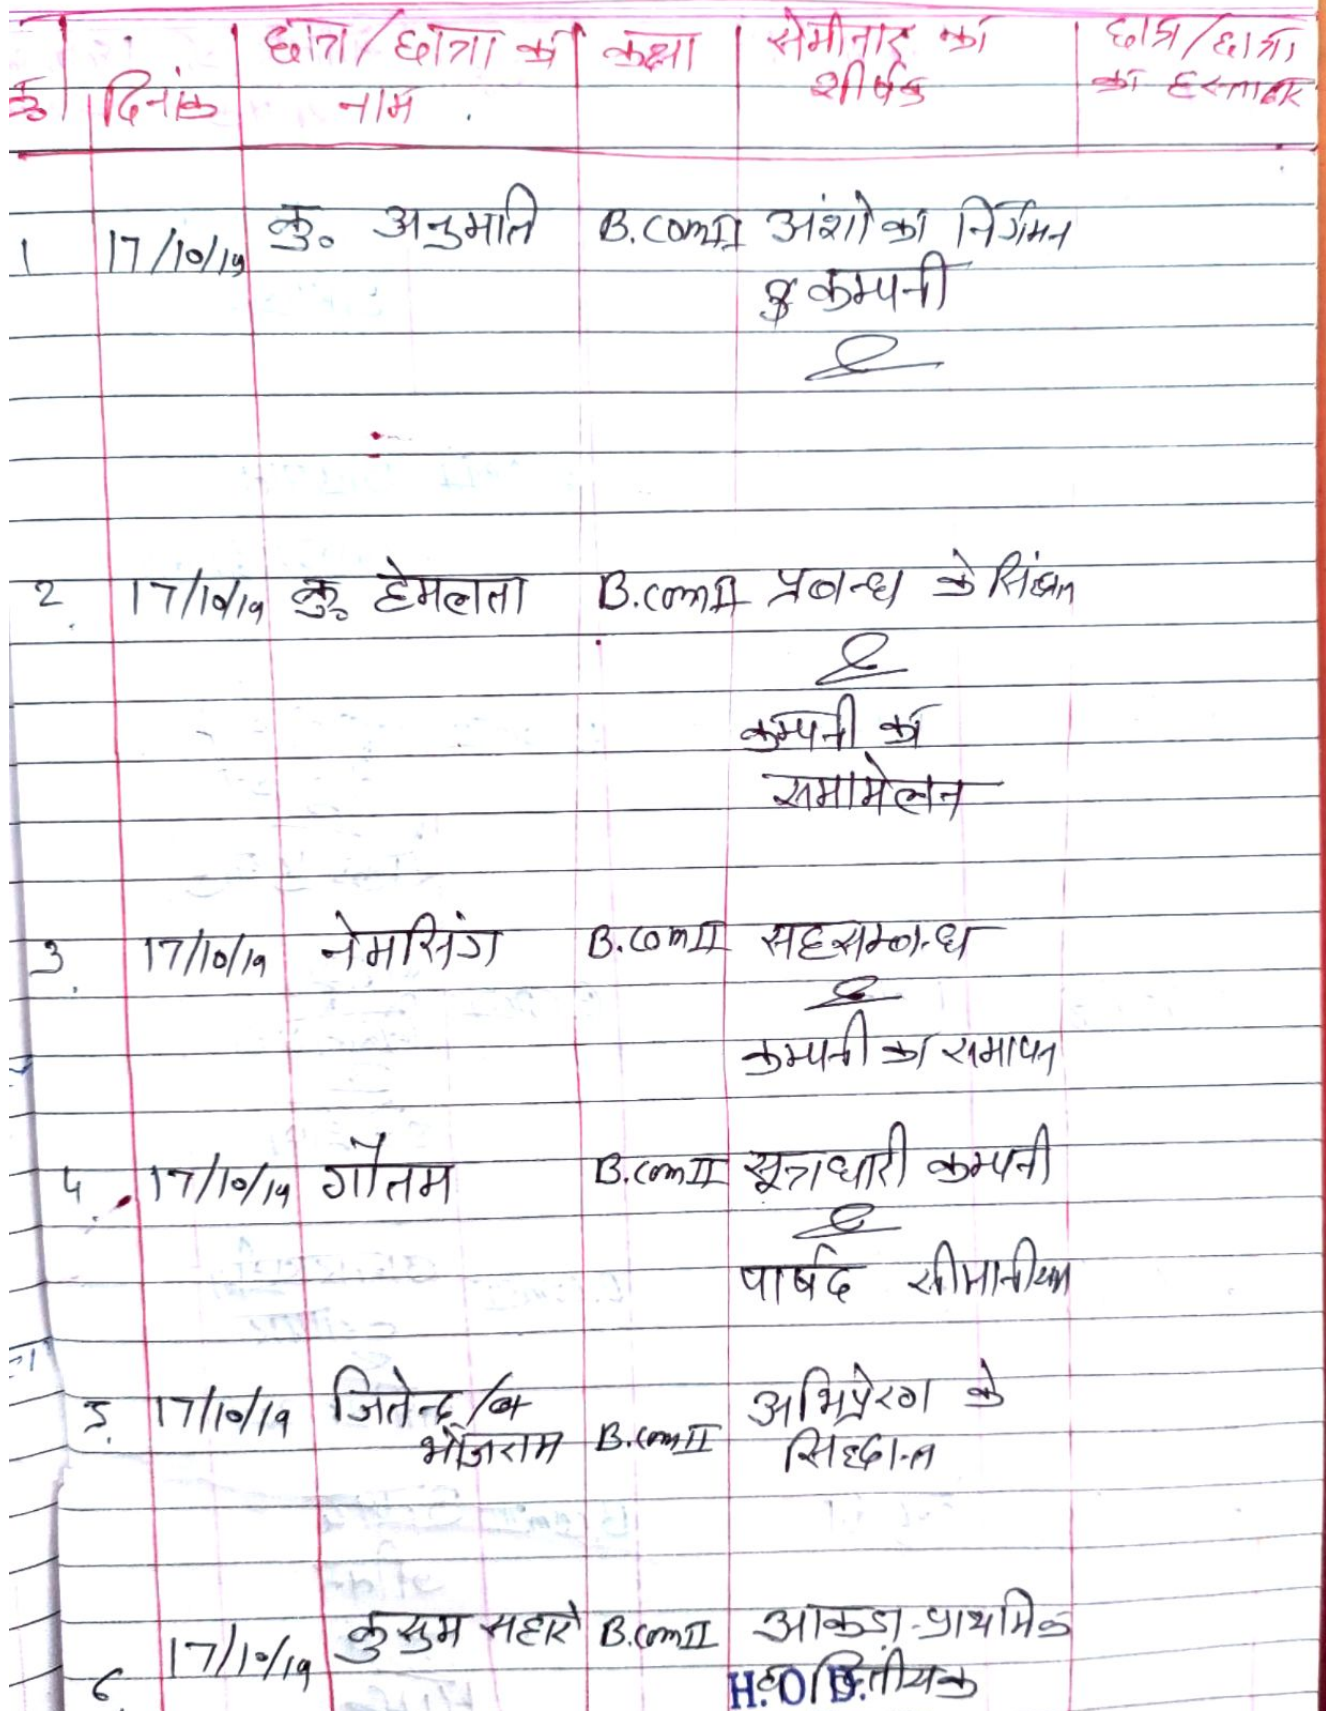 क्र. दिनांक छात्र/छात्रा का नाम कक्षा सेमीनार का शीर्षक छात्र/छात्रा का हस्ताक्षर
1 17/10/19 कु. अनुमति B.com II अंशो का निर्गमन
कम्पनी
2 17/10/19 कु. हेमलता B.com II प्रबन्ध के
कम्पनी का
समामेलन
3 17/10/19 नेमसिंग B.com II सहसम्बन्ध
कम्पनी का समापन
4 17/10/19 गौतम B.com II सूत्राधारी कम्पनी
पार्षद सीमानियम
5. 17/10/19 जितेन्द्र / अभिप्रेरण के
भोजराम B.com II सिद्धान्त
6 17/10/19 कुसुम सहारे B.com II आकडा-प्राथमिक
द्वितीयक
H.O.D.